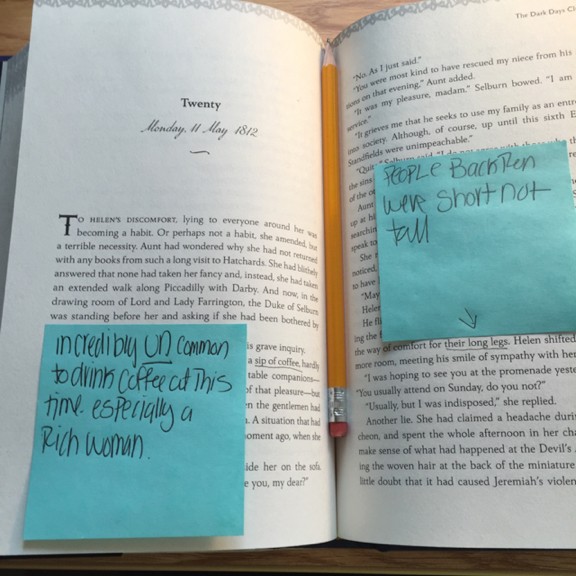 Twenty
Monday, 11 May 1812
TO HELEN'S DISCOMFORT, lying to everyone around her was
becoming a habit. Or perhaps not a habit, she amended, but
a terrible necessity. Aunt had wondered why she had not returned
with any books from such a long visit to Hatchards. She had blithely
answered that none had taken her fancy and, instead, she had taken
an extended walk along Piccadilly with Darby. And now, in the
drawing room of Lord and Lady Farrington, the Duke of Selburn
was standing before her and asking if she had been bothered by
is grave inquiry.
a sip of coffee, hardly
table companions—
of that pleasure—but
en the gentlemen had
. A situation that had
oment ago, when she
ide her on the sofa.
e you, my dear?"
incREdibly UN common
to dRink Coffee at This
time. especially a
Rich woman.
The Dark Days Cl
"No. As I just said."
"You were most kind to have rescued my niece from his
sions on that evening," Aunt added.
"It was my pleasure, madam." Selburn bowed. "I am
service."
"It grieves me that he seeks to use my family as an entr
into society. Although, of course, up until this sixth E
Standfields were unimpeachable."
"Quit
the sins
of the
Aunt
up at hi
searchin
speak to
She
noticed,
to have
"May
Helen
He fli
ing the
PEOPLE BackThen
were short not
tall
the way of comfort for their long legs. Helen shifted
more room, meeting his smile of sympathy with her
"I was hoping to see you at the promenade yeste
"You usually attend on Sunday, do you not?"
"Usually, but I was indisposed," she replied.
Another lie. She had claimed a headache durin
cheon, and spent the whole afternoon in her cha
make sense of what had happened at the Devil's
ing the woven hair at the back of the miniature
little doubt that it had caused Jeremiah's violen